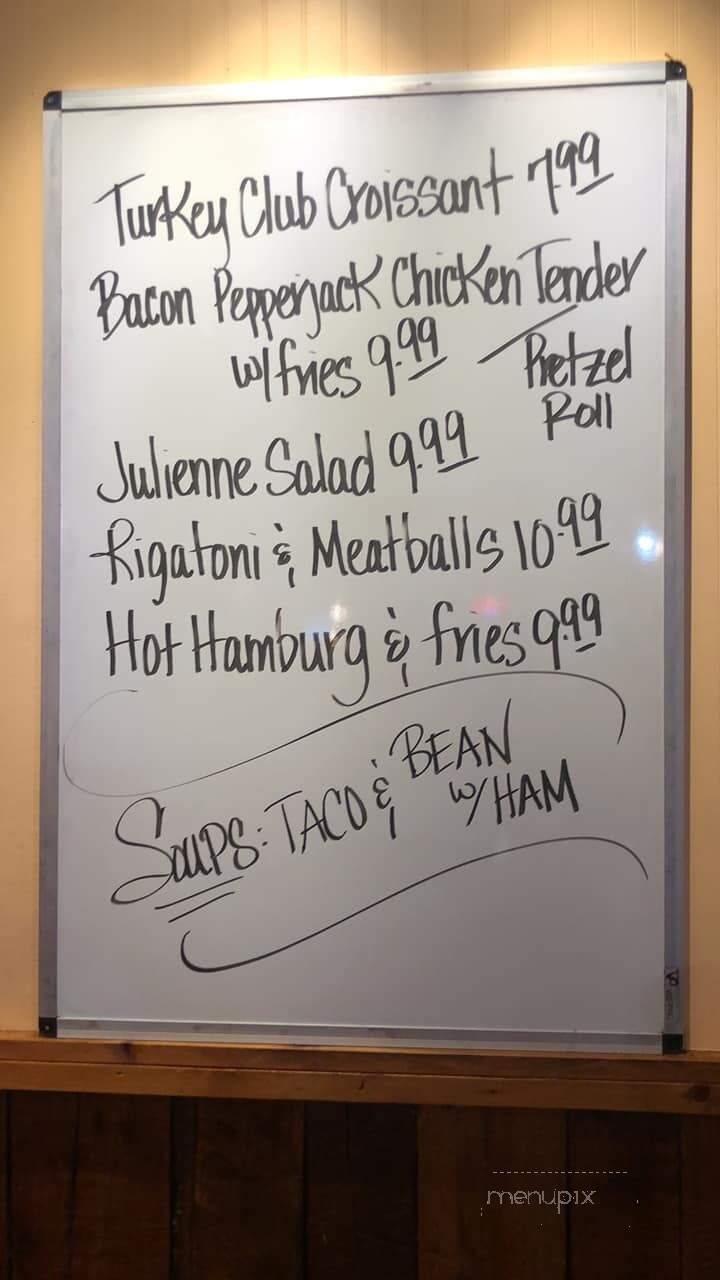 Turkey Club Croissant 7.99
Bacon Pepperjack Chicken Tender
w/fries 9.99 Pretzel
Roll
Julienne Salad 9.99
Rigatoni & Meatballs 10.99
Hot Hamburg & fries 9.99
Soups: TACO & BEAN
w/ HAM
menupix